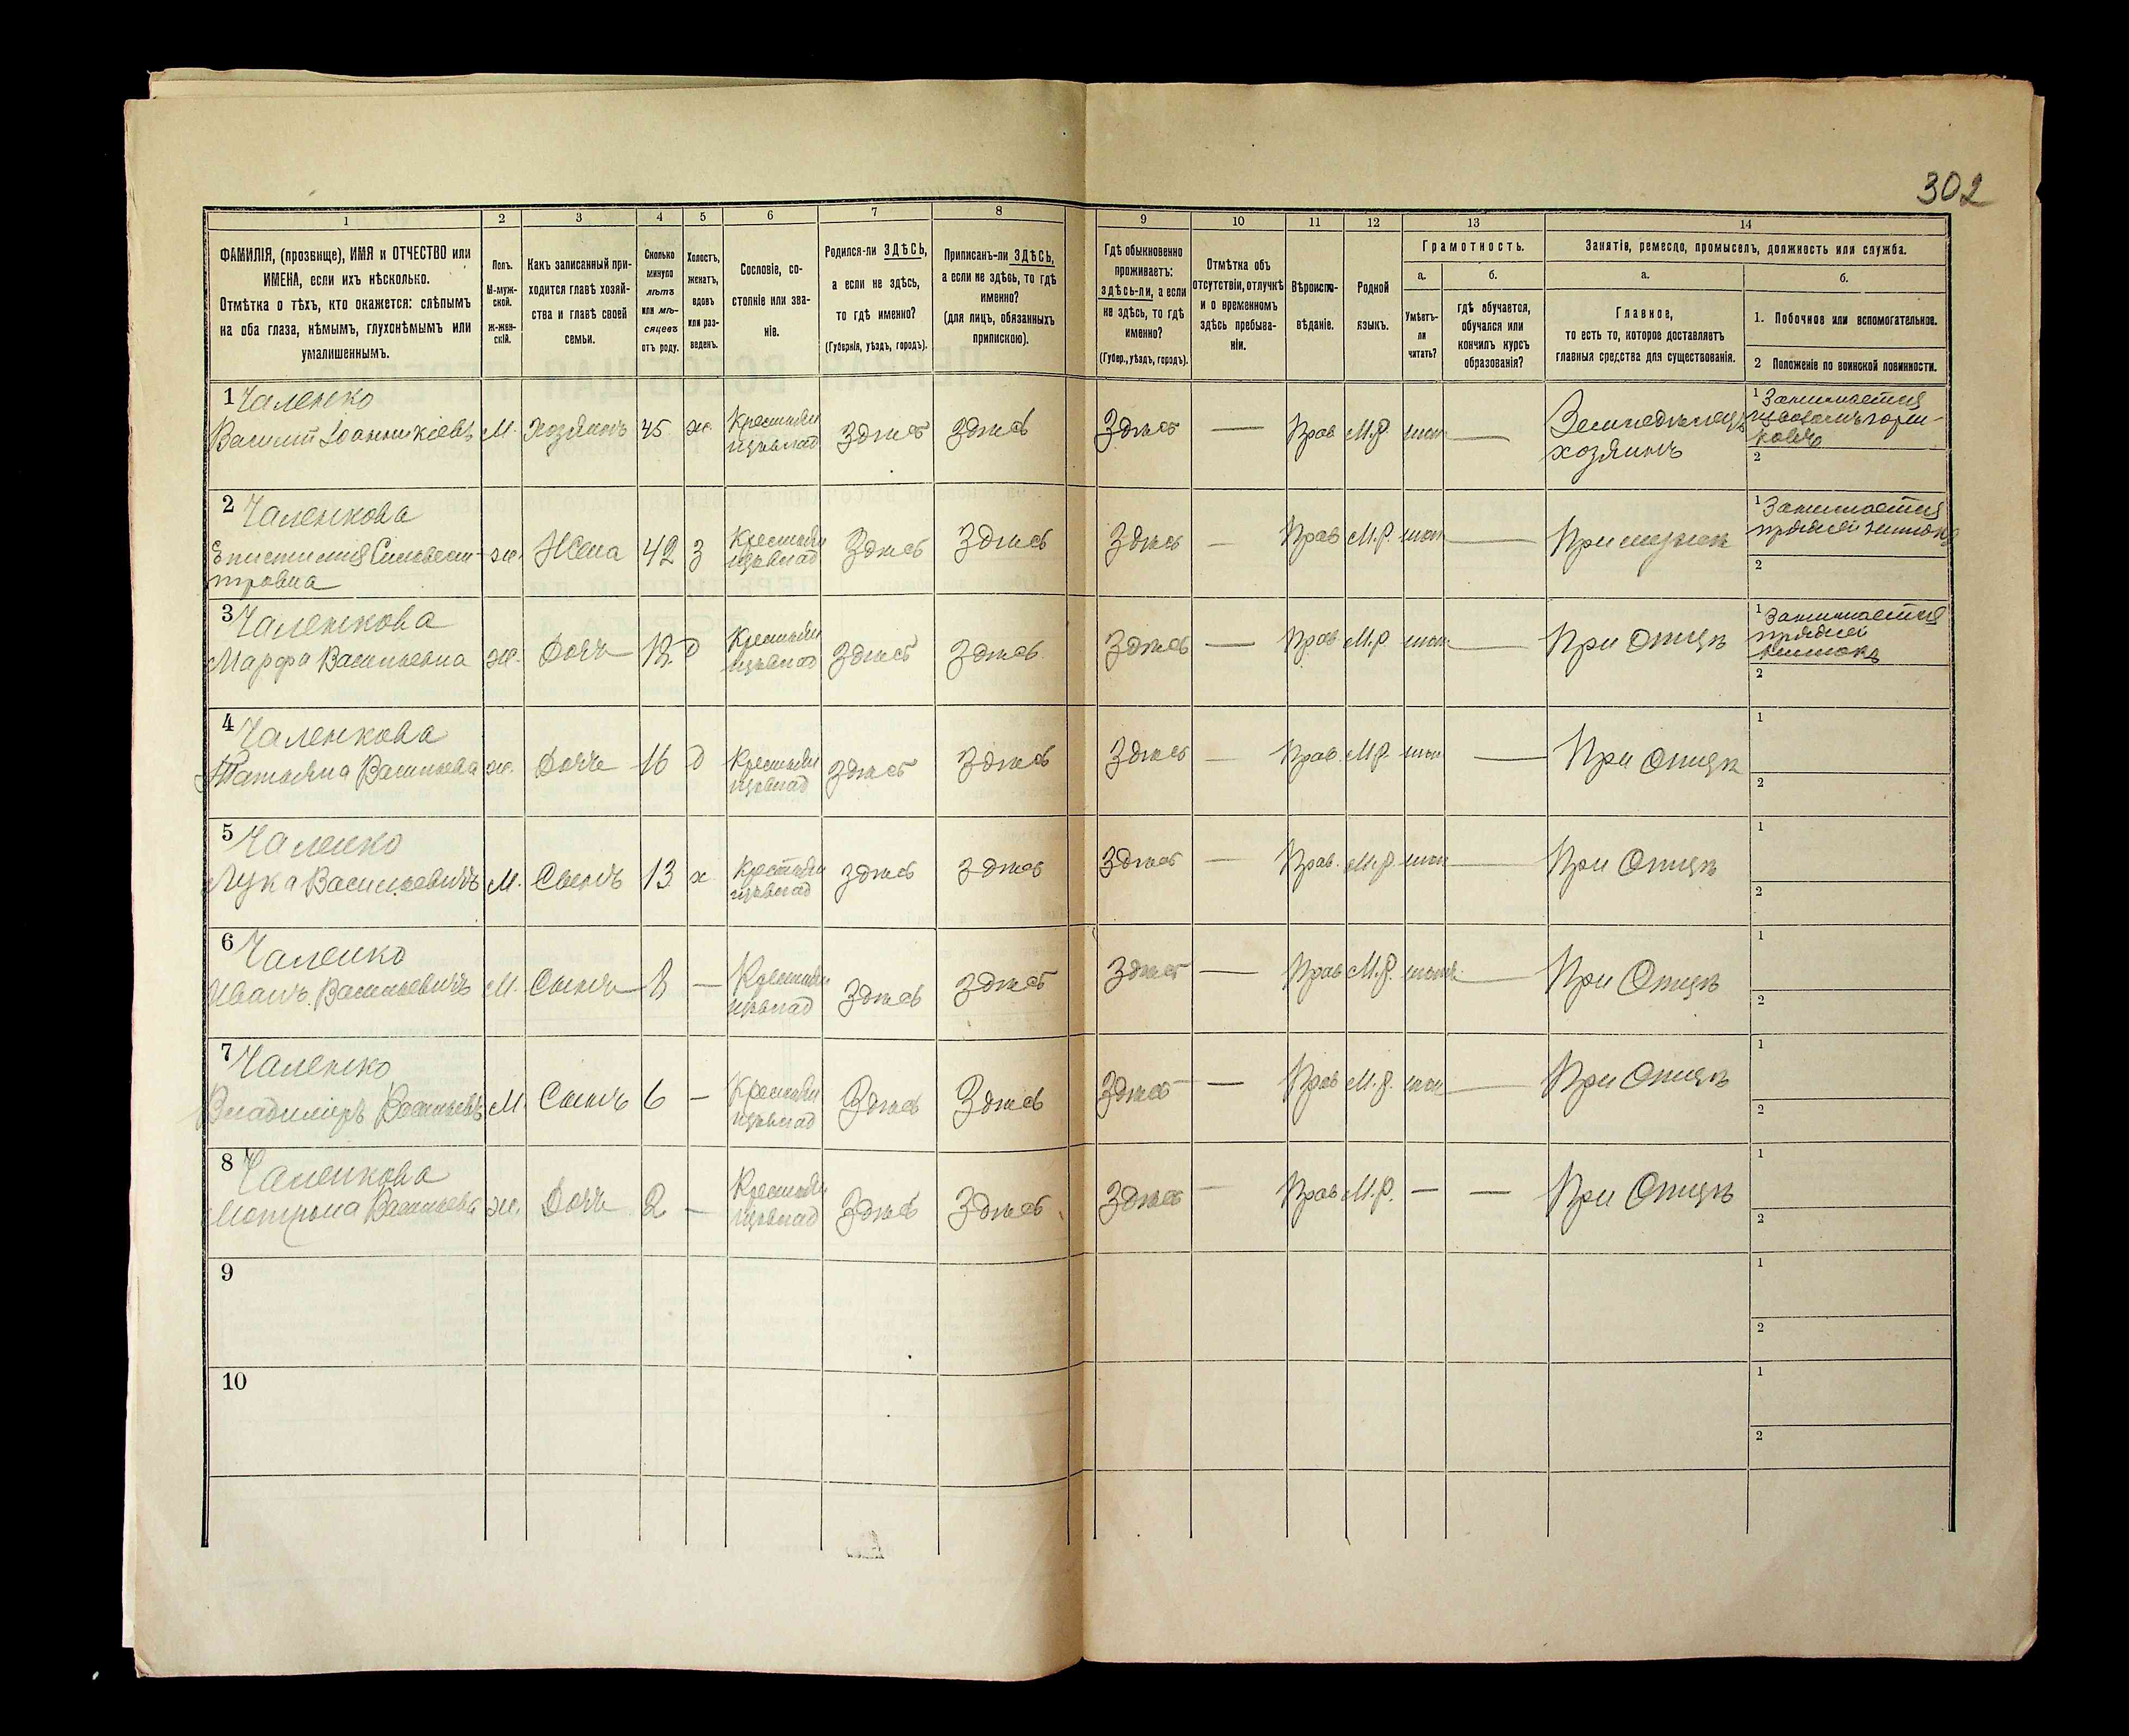 302
1 2 3 4 5 6 7 8 9 10 11 12 13 14
ФАМИЛІЯ, (прозвище), ИМЯ и ОТЧЕСТВО или
ИМЕНА, если ихъ нѣсколько.
Отмѣтка о тѣхъ, кто окажется: слѣпымъ
на оба глаза, нѣмымъ, глухонѣмымъ или
умалишеннымъ.
Полъ.
М-муж-
ской.
Ж-жен-
скій.
Какъ записанный при-
ходится главѣ хозяй-
ства и главѣ своей
семьи.
Сколько
минуло
лѣтъ
или мѣ-
сяцевъ
отъ роду.
Холостъ,
женатъ,
вдовъ
или раз-
веденъ.
Сословіе, со-
стояніе или зва-
ніе.
Родился-ли ЗДѢСЬ,
а если не здѣсь,
то гдѣ именно?
(Губернія, уѣздъ, городъ).
Приписанъ-ли ЗДѢСЬ,
а если не здѣсь, то гдѣ
именно?
(для лицъ, обязанныхъ
припискою).
Гдѣ обыкновенно
проживаетъ:
здѣсь-ли, а если
не здѣсь, то гдѣ
именно?
(Губер., уѣздъ, городъ).
Отмѣтка объ
отсутствіи, отлучкѣ
и о временномъ
здѣсь пребыва-
ніи.
Вѣроиспо-
вѣданіе.
Родной
языкъ.
Грамотность.
а.
Умѣетъ-
ли
читать?
б.
гдѣ обучается,
обучался или
кончилъ курсъ
образованія?
Занятіе, ремесло, промыселъ, должность или служба.
а.
Главное,
то есть то, которое доставляетъ
главныя средства для существованія.
б.
1. Побочное или вспомогательное.
2 Положеніе по воинской повинности.
1 Чаленко
Василій Іоанникіевъ М. Хозяинъ 45 ж. Крестьян Здѣсь Здѣсь Здѣсь — Прав М.Р. —
хозяинъ
1 Занимается
2
2 Чаленкова
ж. Жена 42 З Крестьян Здѣсь Здѣсь Здѣсь — Прав М.Р. —
1 Занимается
пряжей нитокъ
2
3 Чаленкова
Марфа Васильевна ж. Дочь Д Крестьян Здѣсь Здѣсь Здѣсь — Прав М.Р. — При Отцѣ
1 Занимается
пряжей
нитокъ
2
4 Чаленкова
Татьяна Васильева ж. Дочь 16 Д Крестьян Здѣсь Здѣсь Здѣсь — Прав. М.Р. — При Отцѣ
1
2
5 Чаленко
Лука Васильевичъ М. Сынъ 13 х Крестьян Здѣсь Здѣсь Здѣсь — Прав. М.Р. — При Отцѣ
1
2
6 Чаленко
Иванъ Васильевичъ М. Сынъ 8 — Крестьян Здѣсь Здѣсь Здѣсь — Прав М.Р. — При Отцѣ
1
2
7 Чаленко
Владиміръ Васильевъ М. Сынъ 6 — Крестьян Здѣсь Здѣсь Здѣсь — Прав М.Р. — При Отцѣ
1
2
8 Чаленкова
Мотрона Васильева ж. Дочь 2 — Крестьян Здѣсь Здѣсь Здѣсь — Прав М.Р. — — При Отцѣ
1
2
9
1
2
10
1
2